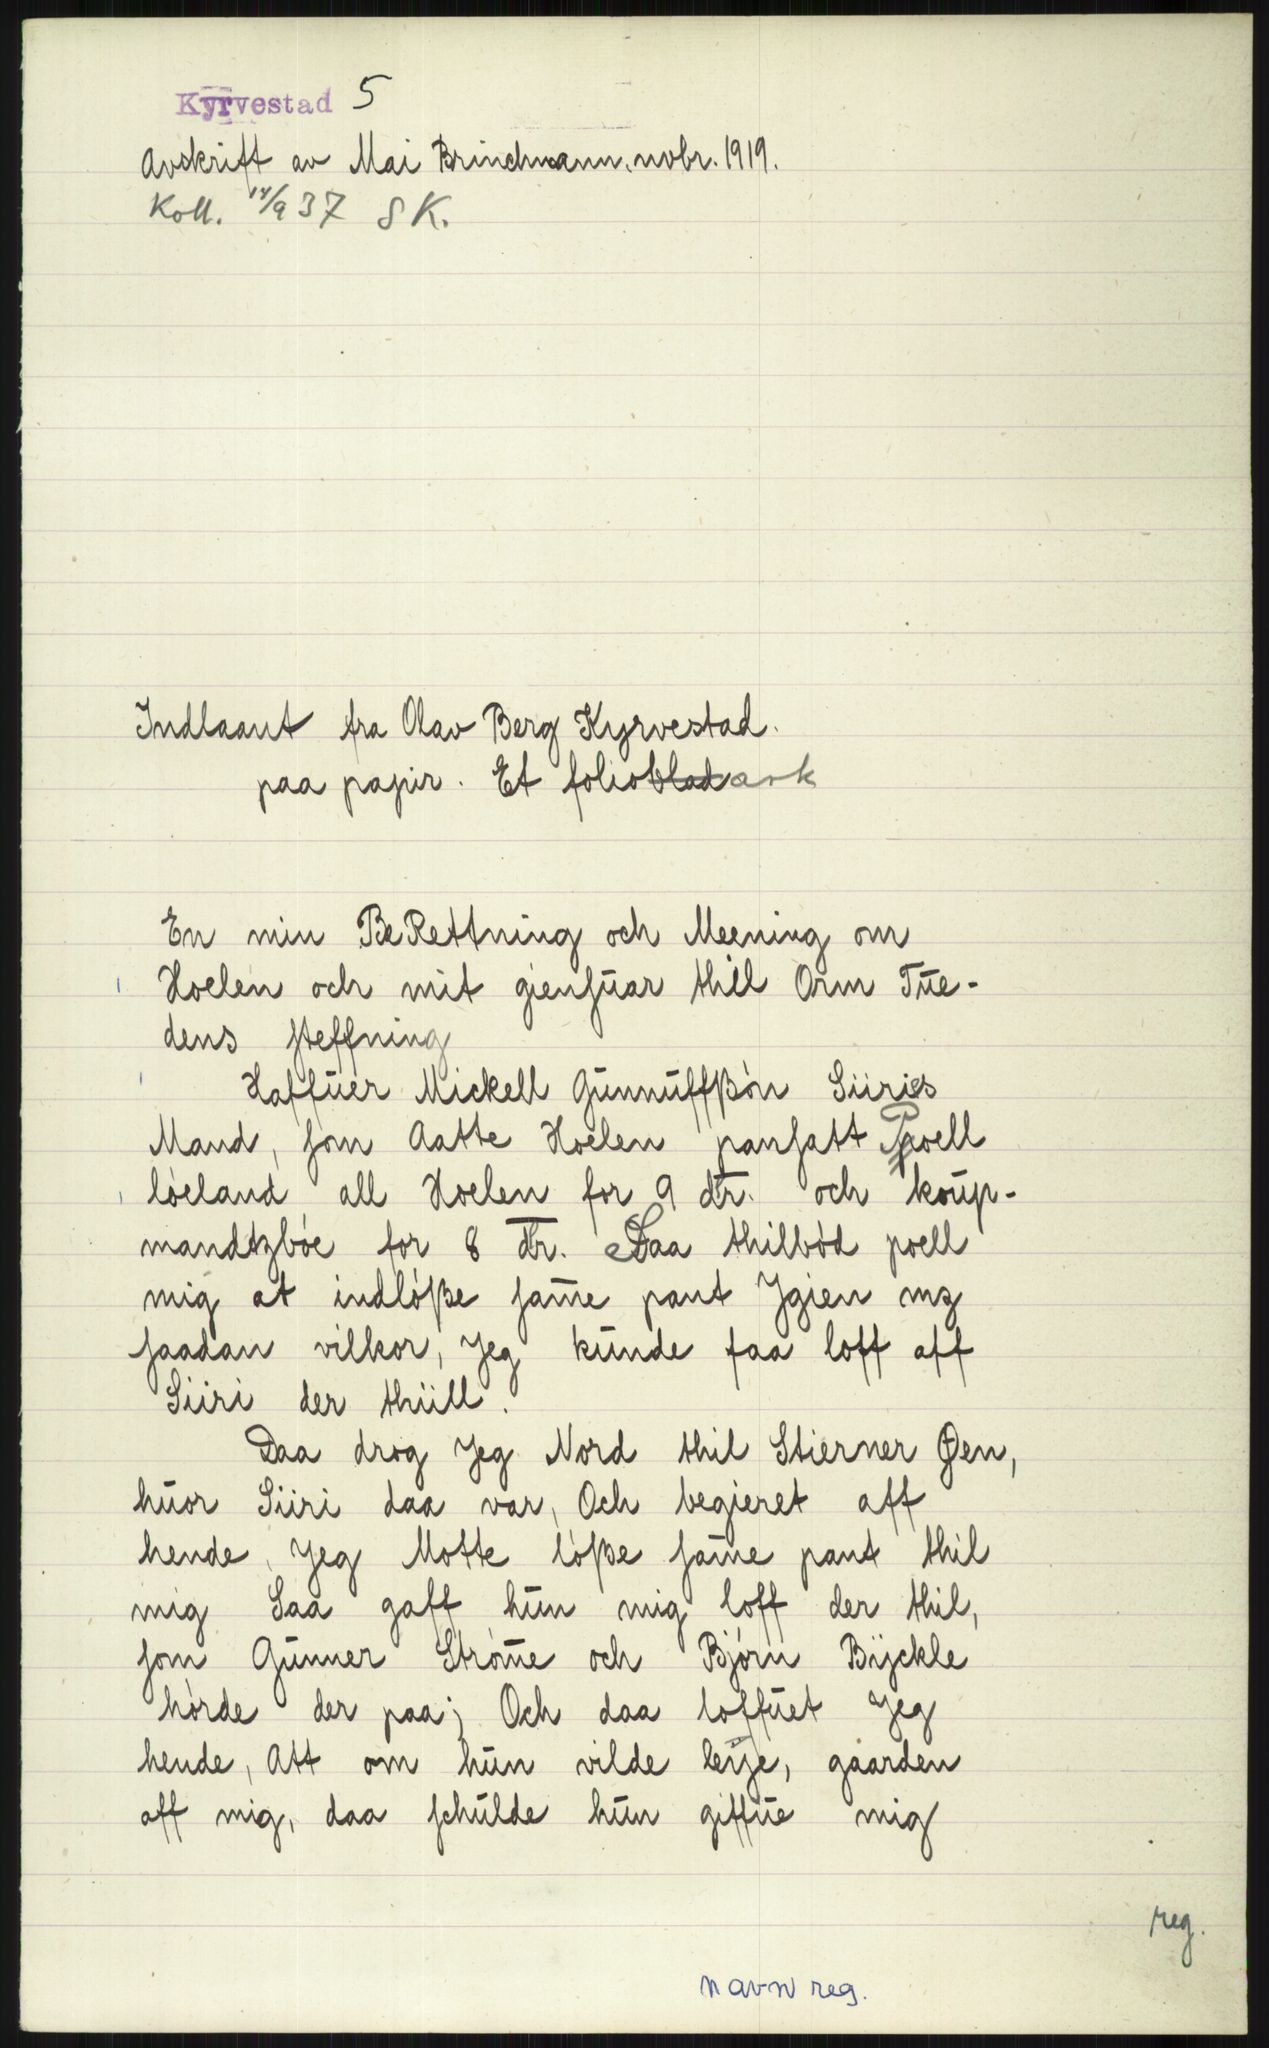 Kyrvestad 5
Avskrift av Mai Brinchmann, novbr. 1919.
Koll. 14/9 37 S K.
Indlaant fra Olav Berg Kyrvestad.
paa papir. Et folioblad ark
En min BeRettning och Meening om
Hoelen och mit giensuar thill Orm Tue-
dens steffning
Haffuer Mickell Gunnuffßøn Siiris
Mand, som Aatte Hoelen pansatt Poell
løeland, all Hoelen for 9 dr. och koup-
mandtzbøe for 8 dr. Daa thilbød poell
mig at indløße same pant Igien mz
saadan vilkor, Jeg kunde faa loff aff
Siiri der thiill.
Daa drog Jeg Nord thil Stierner Øen,
huor Siiri daa var, Och begieret aff
hende, Jeg Motte løße same pant thil
mig Saa gaff hun mig loff der thil,
som Gunner Strøme och Bjørn Bÿckle
hørde der paa; Och daa loffuet Jeg
hende, Att om hun vilde leÿe, gaarden
aff mig, daa schulde hun giffue mig
reg.
navn reg.